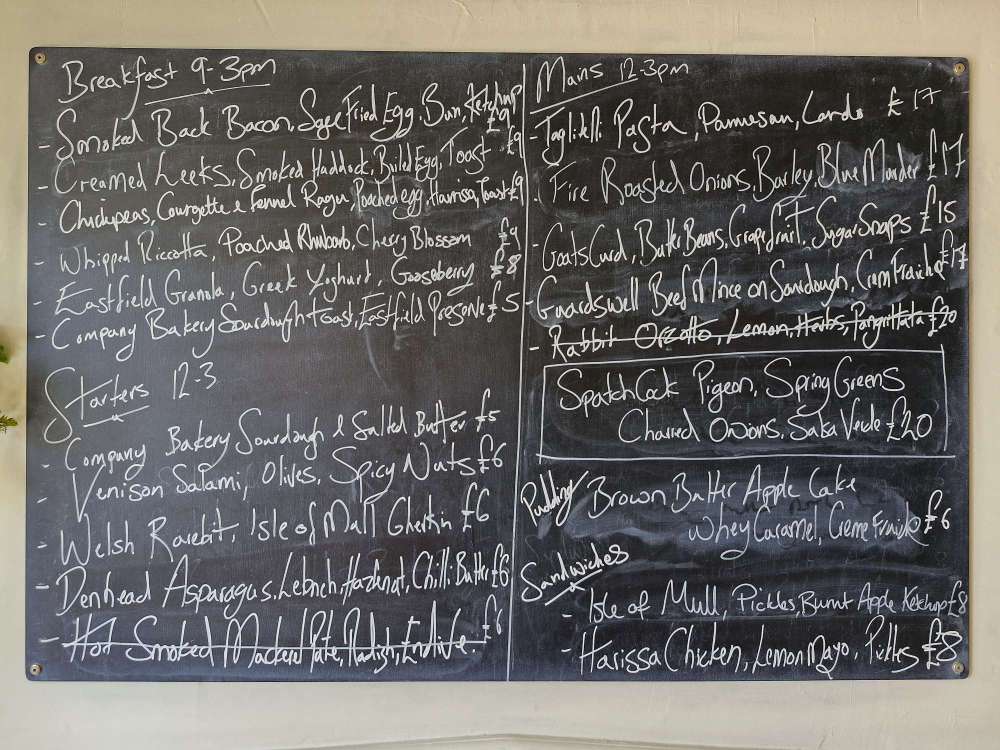 Breakfast 9-3pm
- Smoked Back Bacon, Sage Fried Egg, Bun, Ketchup £9
- Creamed Leeks, Smoked Haddock, Boiled Egg, Toast £9
- Chickpeas, Courgette & Fennel Ragu, Poached egg, Harrisa, Toast £9
- Whipped Riccotta, Poached Rhubarb, Cherry Blossom £9
- Eastfield Granola, Greek Yoghurt, Gooseberry £8
- Company Bakery Sourdough toast, Eastfield Preserve £5
Starters 12-3
- Company Bakery Sourdough & Salted Butter £5
- Venison Salami, Olives, Spicy Nuts £6
- Welsh Rarebit, Isle of Mull Gherkin £6
- Denhead Asparagus, Lebneh, Hazelnut, Chilli Butter £6
- Hot Smoked Mackerel Pate, Radish, Endive. £6
Mains 12-3pm
- Taglitelli Pasta, Parmesan, Lardo £17
- Fire Roasted Onions, Barley, Blue Murder £17
- Goats Curd, Butter Beans, Grapefruit, Sugar Snaps £15
- Guardswell Beef Mince on Sourdough, Crem Fraiche £17
- Rabbit Orzotto, Lemon, Herbs, Pangrittata £20
Spatchcock Pigeon, Spring Greens
Charred Onions, Salsa Verde £20
Pudding Brown Butter Apple Cake
Whey Caramel, Creme Fraiche £6
Sandwiches
- Isle of Mull, Pickles, Burnt Apple Ketchup £8
- Harissa Chicken, Lemon Mayo, Pickles £8